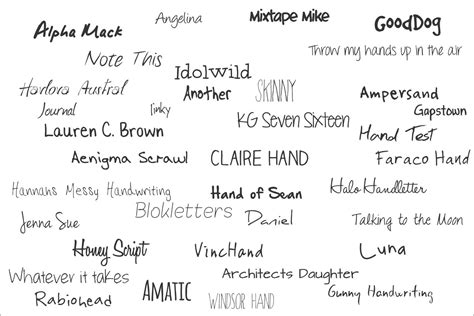 Alpha Mack
Angelina
Mixtape Mike
GoodDog
Note This
Throw my hands up in the air
Idolwild
Harlow Austral
Another
SKINNY
Ampersand
Journal
Inky
Gapstown
Lauren C. Brown
KG Seven Sixteen
Hand Test
Aenigma Scrawl
CLAIRE HAND
Faraco Hand
Hannans Messy Handwriting
Hand of Sean
Halo Handletter
Blokletters
Jenna Sue
Daniel
Talking to the Moon
Honey Script
VincHand
Luna
Whatever it takes
Architects Daughter
Rabiohead
AMATIC
WINDSOR HAND
Gunny Handwriting